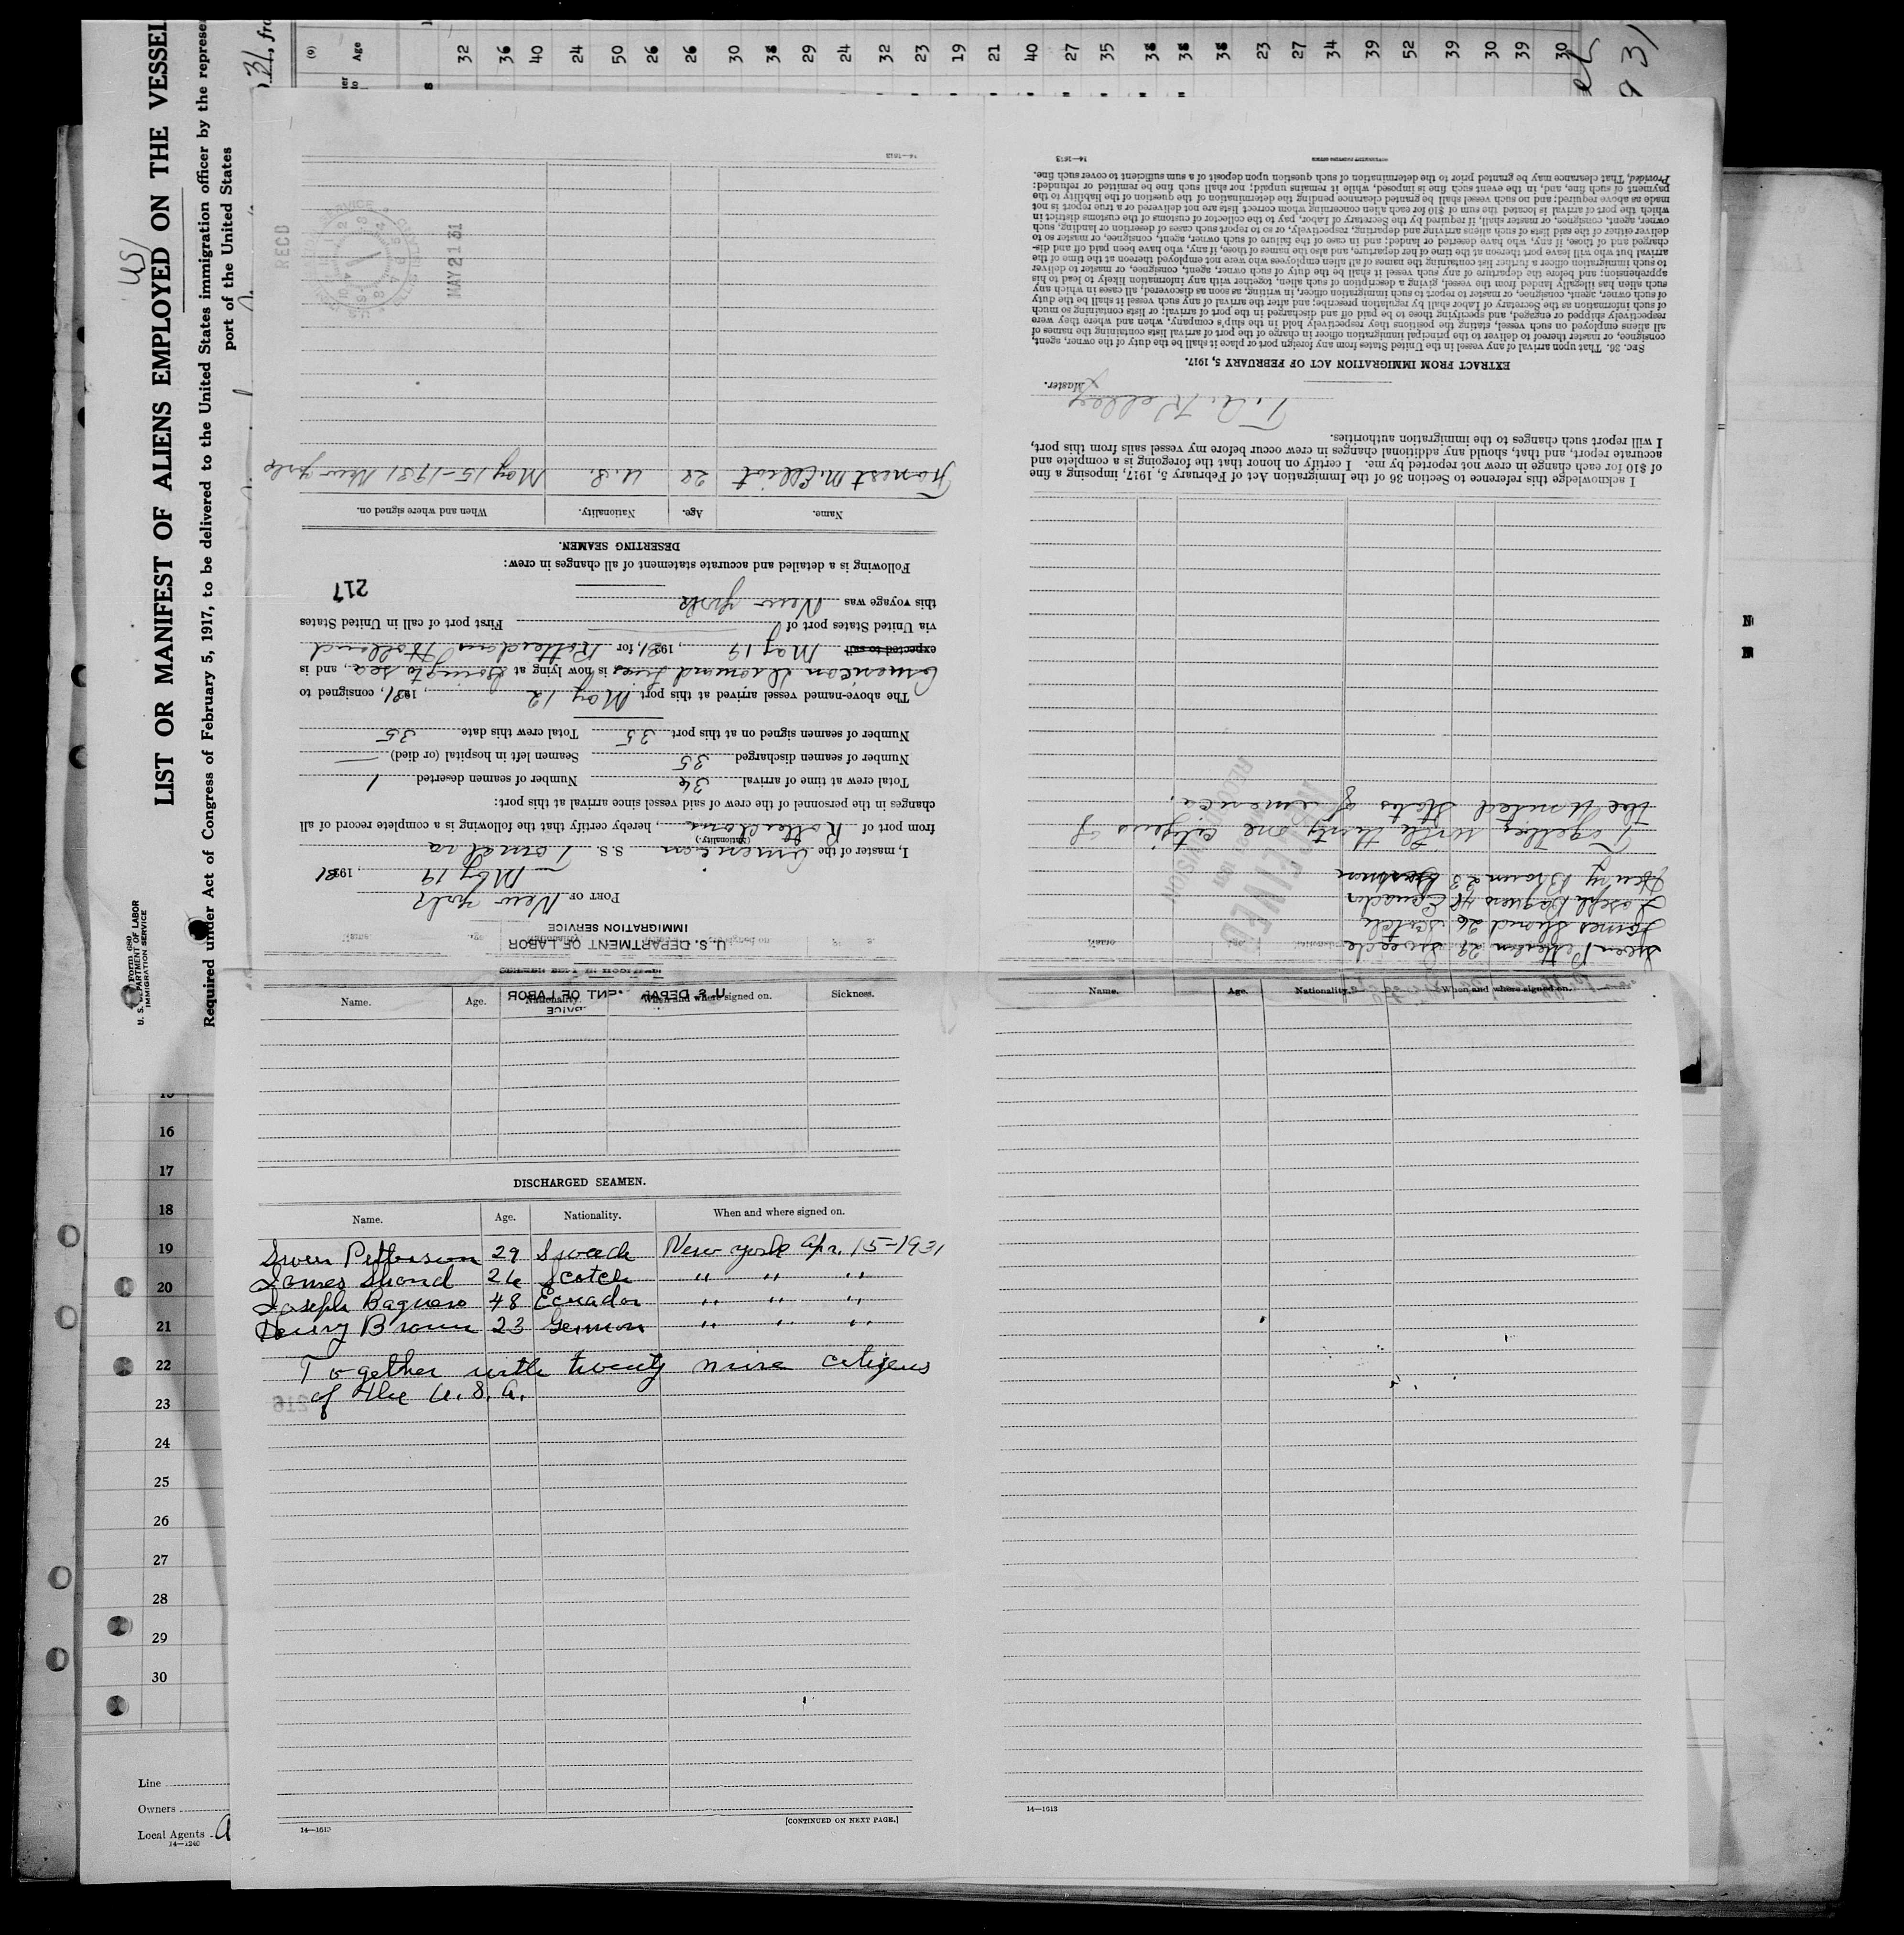 LIST OR MANIFEST OF ALIENS EMPLOYED ON THE VESSEL
Required under Act of Congress of February 5, 1917, to be delivered to the United States immigration officer by the represe
port of the United States
Form 680
U. S. DEPARTMENT OF LABOR
IMMIGRATION SERVICE
US
31, fro
(9)
Age
32 36 40 24 50 26 26 30 38 29 24 32 23 19 21 40 27 35 38 38 38 23 27 34 39 52 39 30 39 30
931
U. S. DEPARTMENT OF LABOR
IMMIGRATION SERVICE
PORT OF New York
May 19, 1931
I, master of the American S. S.
(Nationality)
from port of Rotterdam, hereby certify that the following is a complete record of all
changes in the personnel of the crew of said vessel since arrival at this port:
Total crew at time of arrival 36 Number of seamen deserted 1
Number of seamen discharged 35 Seamen left in hospital (or died)
Number of seamen signed on at this port 35 Total crew this date 35
The above-named vessel arrived at this port May 12, 1931, consigned to
American Diamond Lines, is now lying at Going to sea, and is
expected to sail May 19, 1931, for Rotterdam Holland
via United States port of First port of call in United States
this voyage was New York
217
Following is a detailed and accurate statement of all changes in crew:
DESERTING SEAMEN.
Name. Age. Nationality. When and where signed on.
M. Elliot 22 U.S. May 15-1931 New York
RECD
MAY 21 31
14—1613
Swen Petterson 29 Sweede
James Shand 26 Scotch
Joseph Baquero 48 Ecuador
Henry Brown 23 German
Together with thirty one citizens of
the United States of America.
RECEIVED
I acknowledge this reference to Section 36 of the Immigration Act of February 5, 1917, imposing a fine
of $10 for each change in crew not reported by me. I certify on honor that the foregoing is a complete and
accurate report, and that, should any additional changes in crew occur before my vessel sails from this port,
I will report such changes to the immigration authorities.
Master.
EXTRACT FROM IMMIGRATION ACT OF FEBRUARY 5, 1917.
SEC. 36. That upon arrival of any vessel in the United States from any foreign port or place it shall be the duty of the owner, agent,
consignee, or master thereof to deliver to the principal immigration officer in charge of the port of arrival lists containing the names of
all aliens employed on such vessel, stating the positions they respectively hold in the ship's company, when and where they were
respectively shipped or engaged, and specifying those to be paid off and discharged in the port of arrival; or lists containing so much
of such information as the Secretary of Labor shall by regulation prescribe; and after the arrival of any such vessel it shall be the duty
of such owner, agent, consignee, or master to report to such immigration officer, in writing, as soon as discovered, all cases in which any
such alien has illegally landed from the vessel, giving a description of such alien, together with any information likely to lead to his
apprehension; and before the departure of any such vessel it shall be the duty of such owner, agent, consignee, or master to deliver
to such immigration officer a further list containing the names of all alien employees who were not employed thereon at the time of the
arrival but who will leave port thereon at the time of her departure, and also the names of those, if any, who have been paid off and dis-
charged and of those, if any, who have deserted or landed; and in case of the failure of such owner, agent, consignee, or master so to
deliver either of the said lists of such aliens arriving and departing, respectively, or so to report such cases of desertion or landing, such
owner, agent, consignee, or master shall, if required by the Secretary of Labor, pay to the collector of customs of the customs district in
which the port of arrival is located the sum of $10 for each alien concerning whom correct lists are not delivered or a true report is not
made as above required; and no such vessel shall be granted clearance pending the determination of the question of the liability to the
payment of such fine, and, in the event such fine is imposed, while it remains unpaid; nor shall such fine be remitted or refunded:
Provided, That clearance may be granted prior to the determination of such question upon deposit of a sum sufficient to cover such fine.
14—1613
GOVERNMENT PRINTING OFFICE
Name. Age. Nationality. When and where signed on. Sickness.
DISCHARGED SEAMEN.
Name. Age. Nationality. When and where signed on.
Swen Petterson 29 Sweede New York Apr. 15-1931
James Shand 26 Scotch " " "
Joseph Baquero 48 Ecuador " " "
Henry Brown 23 German " " "
Together with twenty nine citizens
of the U.S.A.
216
14—1613
[CONTINUED ON NEXT PAGE.]
Name. Age. Nationality. When and where signed on.
14—1613
15
16
17
18
19
20
21
22
23
24
25
26
27
28
29
30
Line
Owners
Local Agents
14—1240